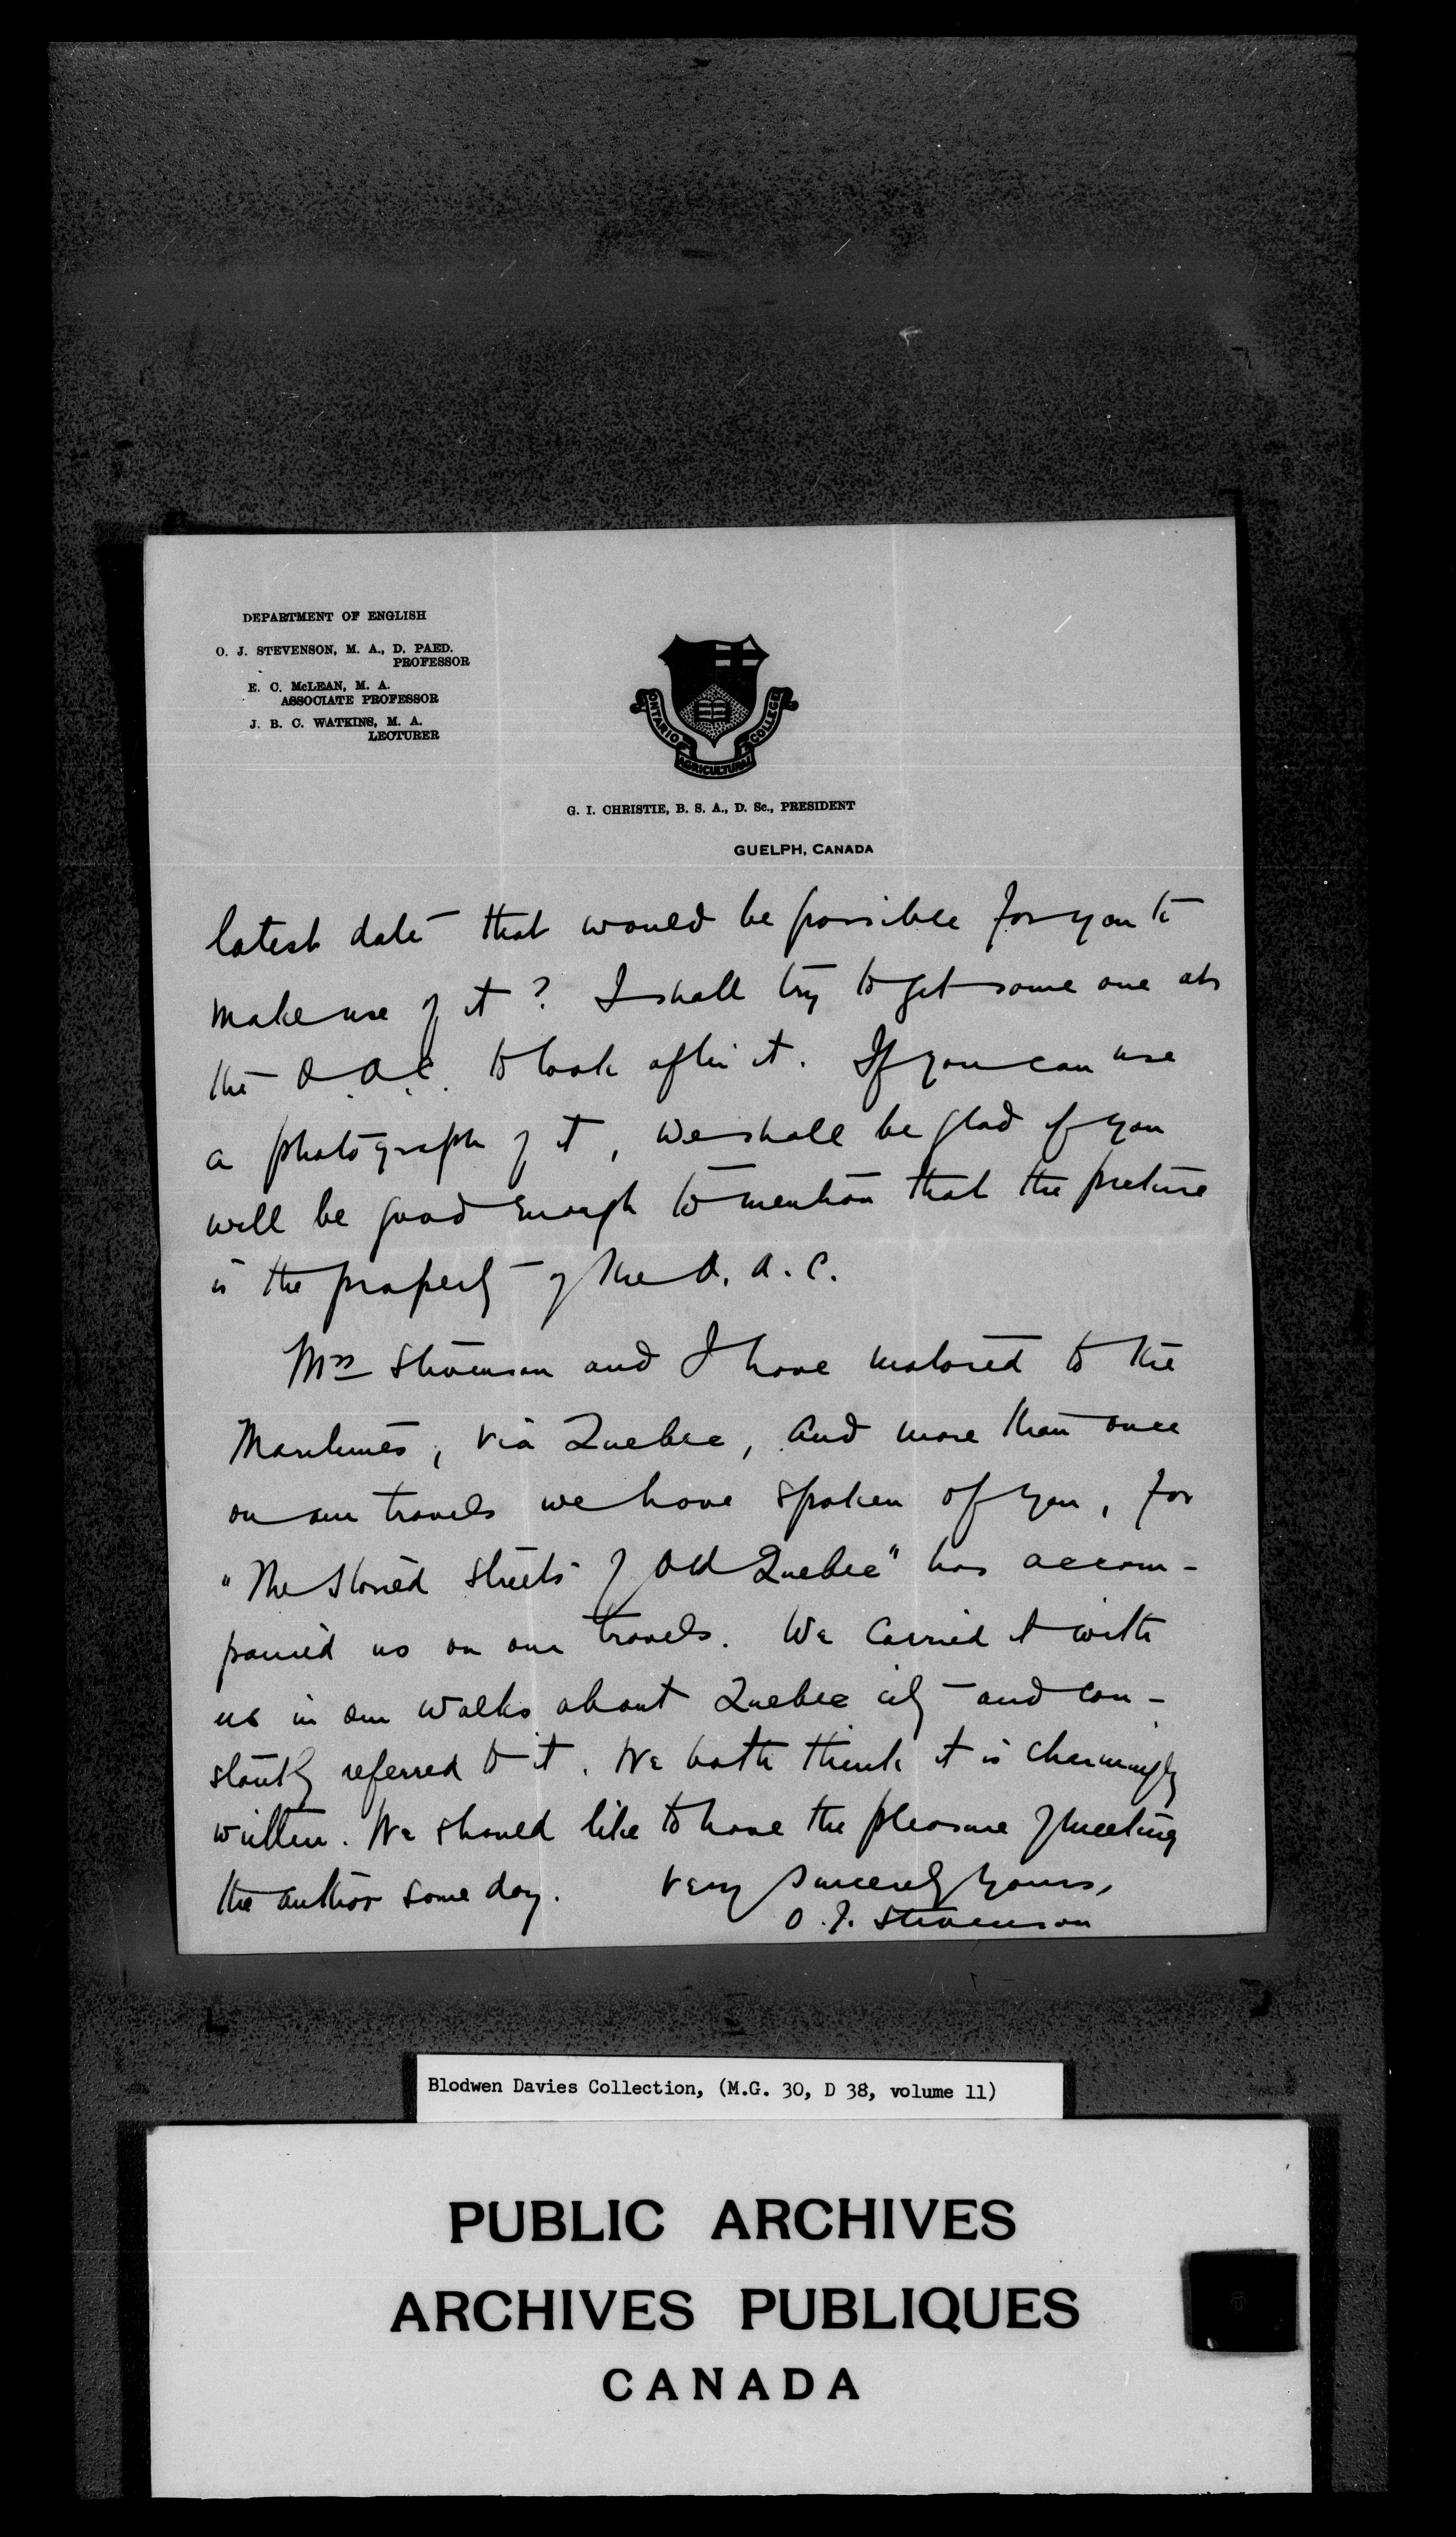 DEPARTMENT OF ENGLISH
O. J. STEVENSON, M. A., D. PAED.
PROFESSOR
E. C. McLEAN, M. A.
ASSOCIATE PROFESSOR
J. B. C. WATKINS, M. A.
LECTURER
ONTARIO AGRICULTURAL COLLEGE
G. I. CHRISTIE, B. S. A., D. Sc., PRESIDENT
GUELPH, CANADA
latest date that would be possible for you to
make use of it? I shall try to get some one at
the O.A.C. to look after it. If you can use
a photograph of it, we shall be glad if you
will be good enough to mention that the picture
is the property of the O. A. C.
Mrs Stevenson and I have motored to the
Maritimes, via Quebec, and more than once
on our travels we have spoken of you, for
"The Storied Streets of Old Quebec" has accom-
panied us on our travels. We carried it with
us in our walks about Quebec city and con-
stantly referred to it. We both think it is charmingly
written. We should like to have the pleasure of meeting
the author some day. Very Sincerely Yours,
O. J. Stevenson
Blodwen Davies Collection, (M.G. 30, D 38, volume 11)
PUBLIC ARCHIVES
ARCHIVES PUBLIQUES
CANADA